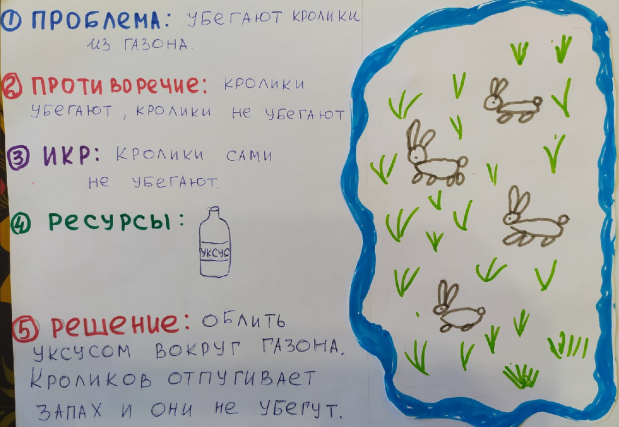 ① ПРОБЛЕМА: УБЕГАЮТ КРОЛИКИ
ИЗ ГАЗОНА.
② ПРОТИВОРЕЧИЕ: КРОЛИКИ
УБЕГАЮТ, КРОЛИКИ НЕ УБЕГАЮТ
③ ИКР: КРОЛИКИ САМИ
НЕ УБЕГАЮТ.
④ РЕСУРСЫ:
УКСУС
⑤ РЕШЕНИЕ: ОБЛИТЬ
УКСУСОМ ВОКРУГ ГАЗОНА.
КРОЛИКОВ ОТПУГИВАЕТ
ЗАПАХ И ОНИ НЕ УБЕГУТ.